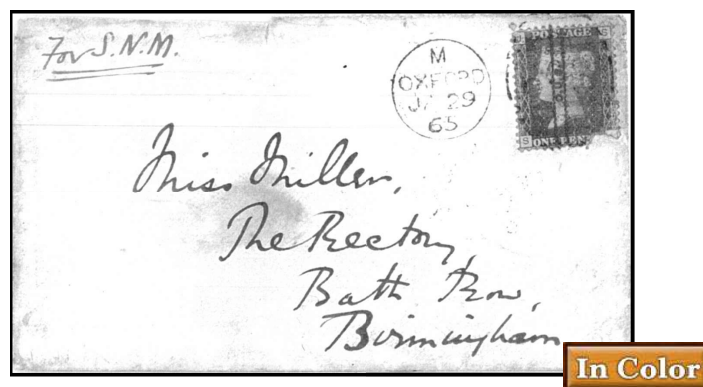 For S.N.M.
M
OXFORD
JA 29
65
POSTAGE
ONE PEN
Miss Miller,
The Rectory,
Bath Row,
Birmingham
In Color